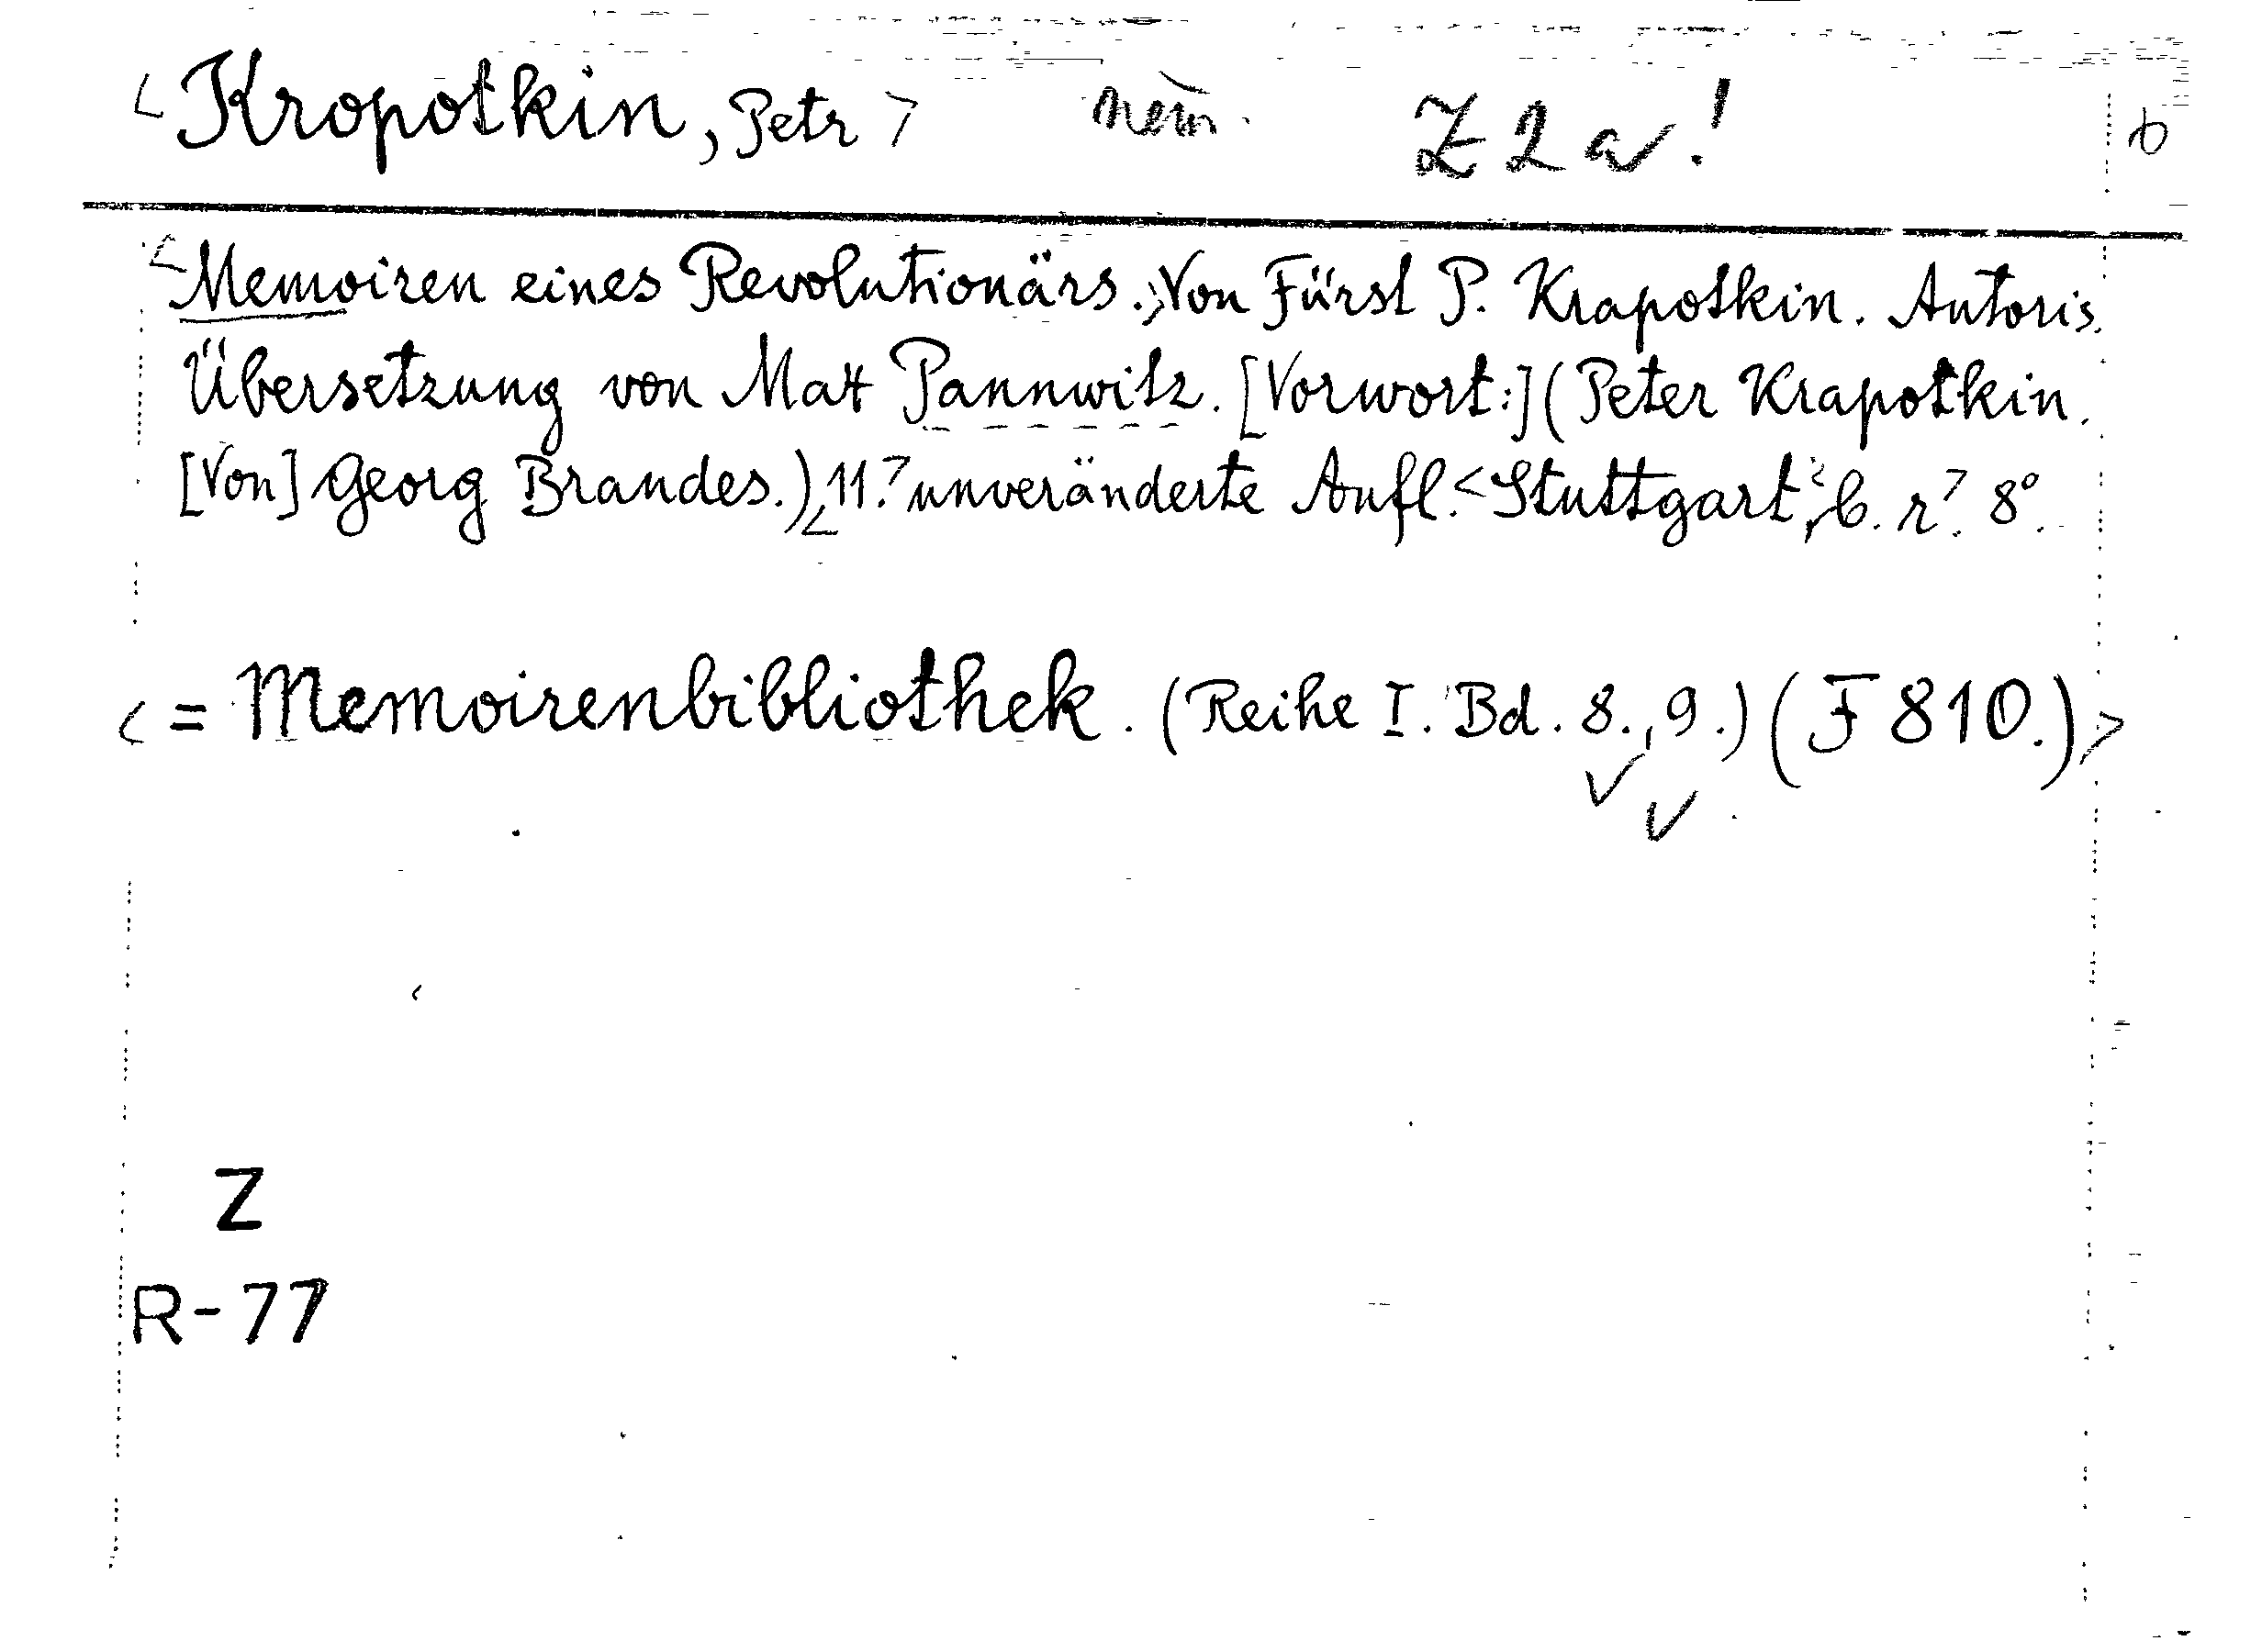 <Kropotkin, Petr> něm. Z 2 a!
<Memoiren eines Revolutionärs.> Von Fürst P. Krapotkin. Autoris.
Übersetzung von Max Pannwitz. [Vorwort:] (Peter Krapotkin.
[Von] Georg Brandes.) <11.> unveränderte Aufl. <Stuttgart, b. r.> 8°.
<= Memoirenbibliothek. (Reihe I. Bd. 8., 9.) (F 810.)>
Z
R-77